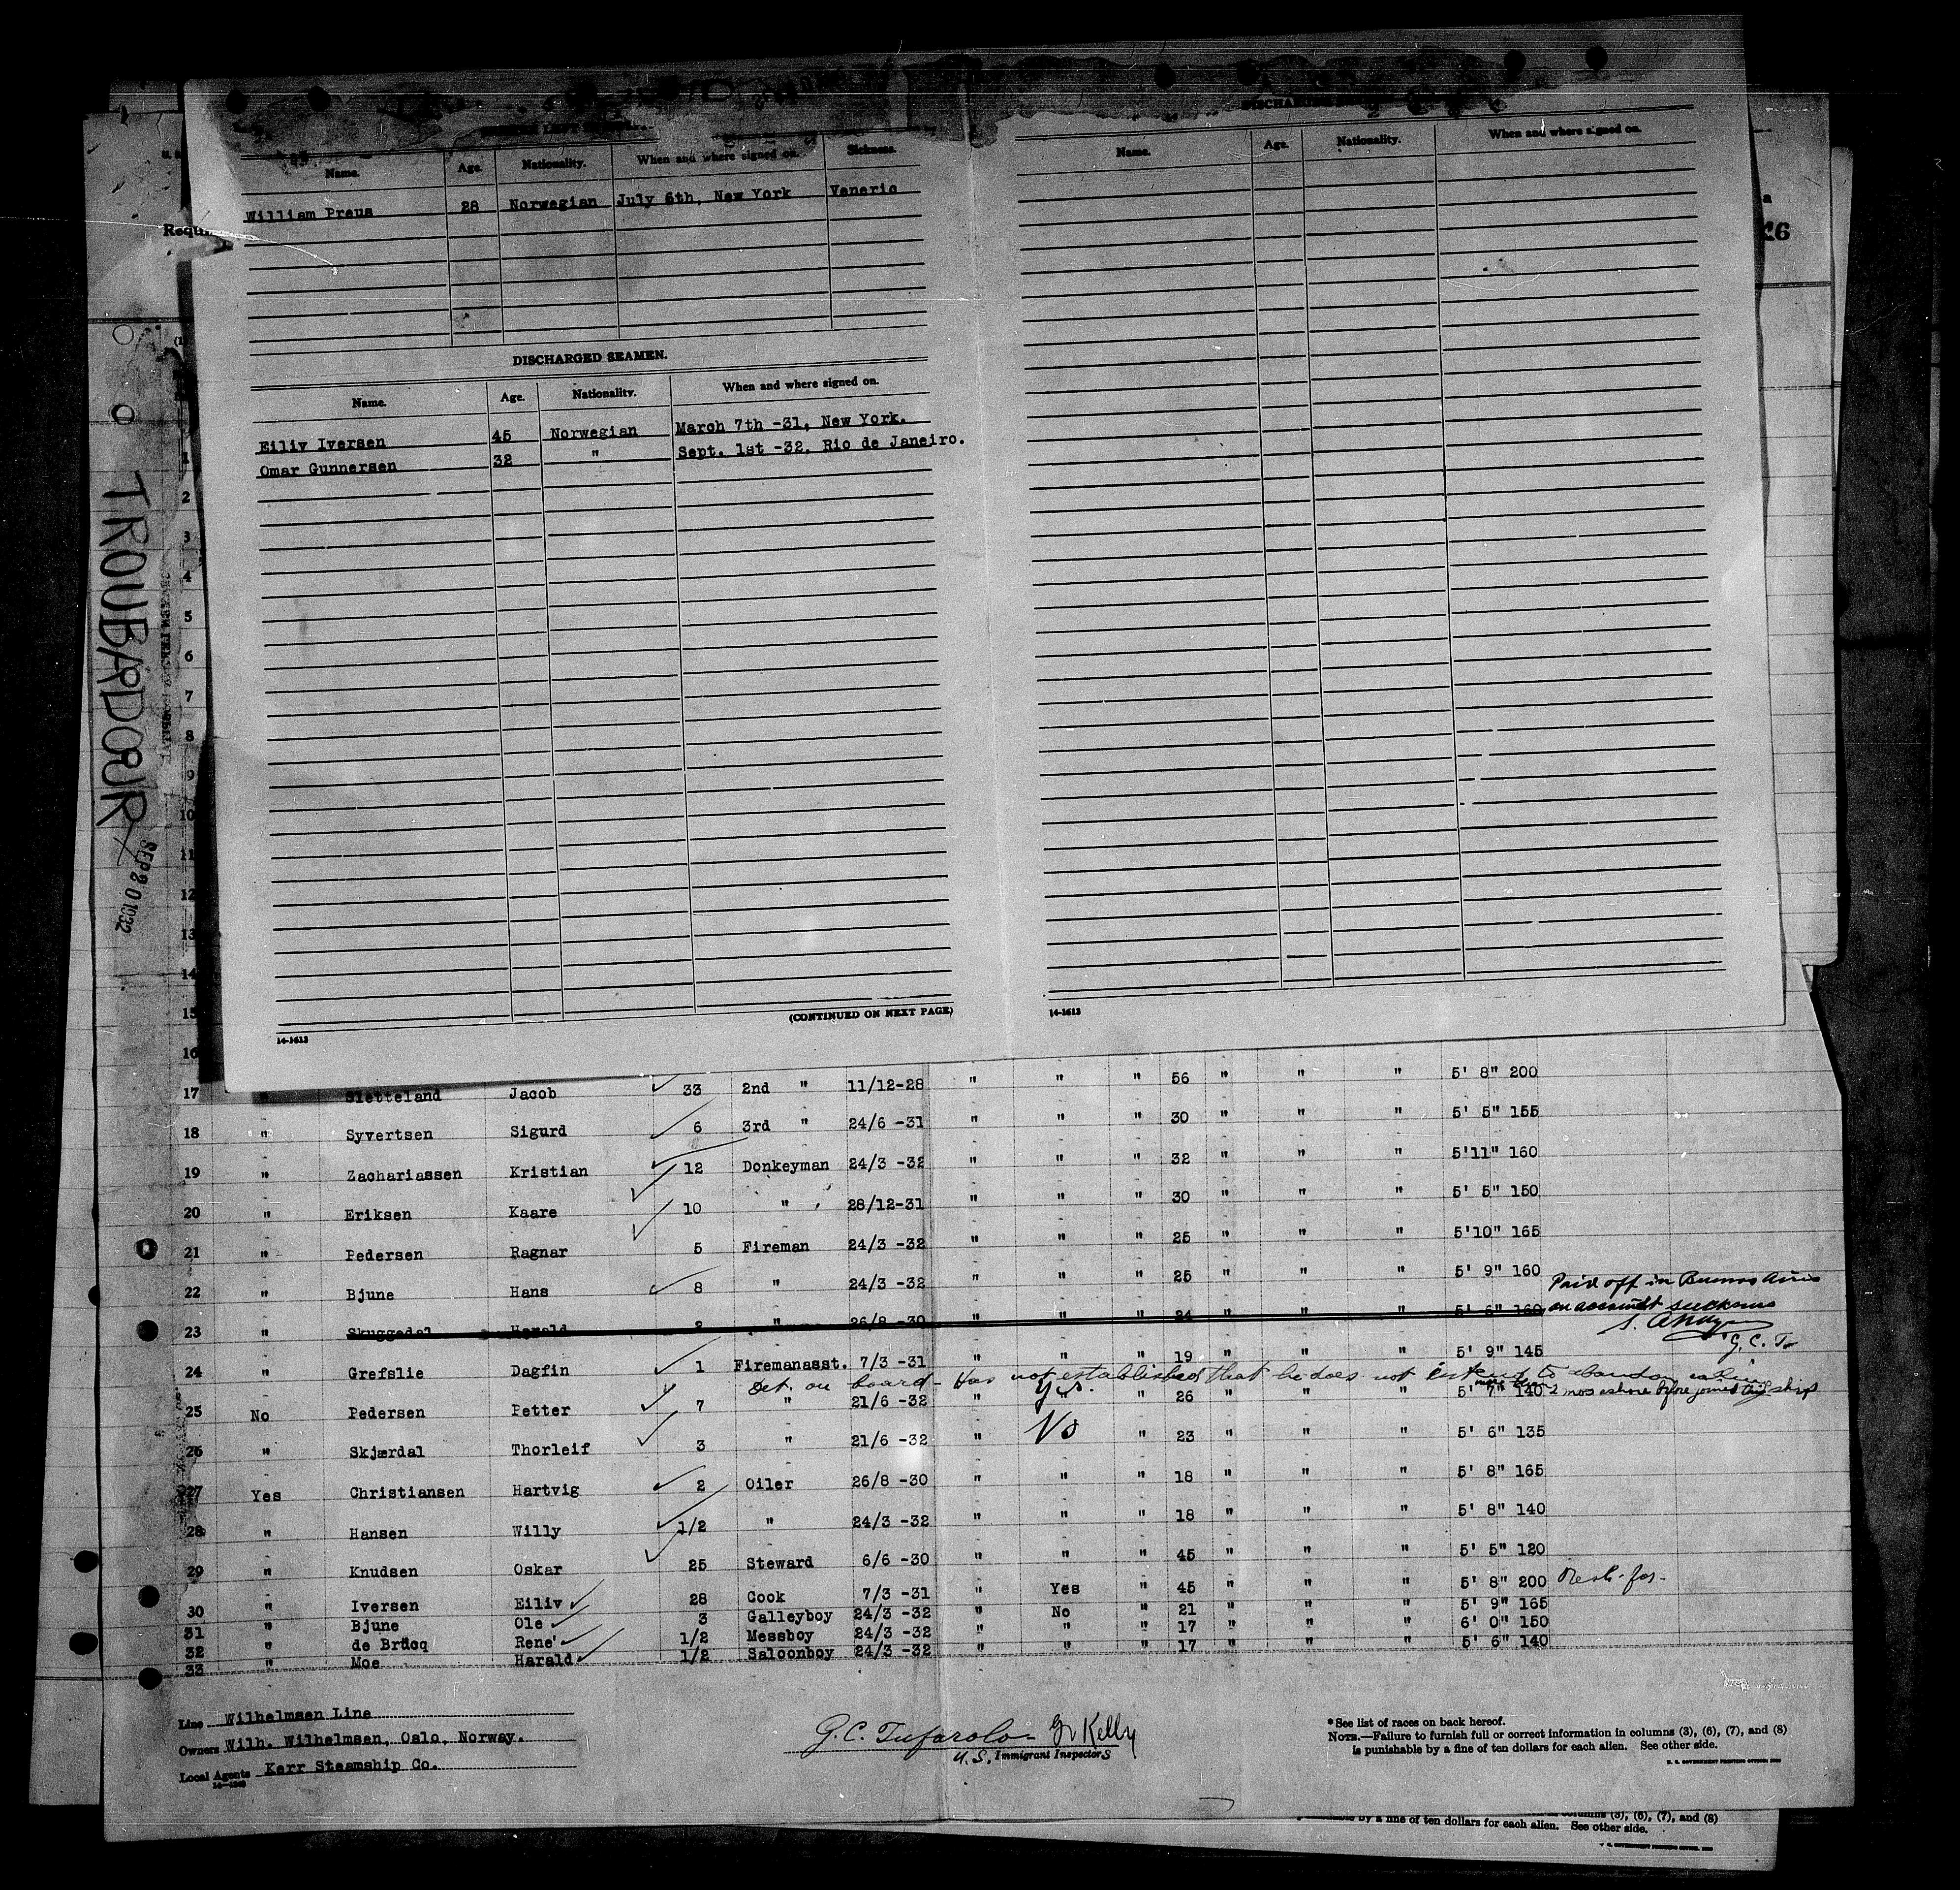 Name. Age. Nationality. When and where signed on. Sickness.
William Prens 28 Norwegian July 6th, New York Veneric
DISCHARGED SEAMEN.
Name. Age. Nationality. When and where signed on.
Eiliv Iversen 45 Norwegian March 7th -31, New York.
Omar Gunnersen 32 " Sept. 1st -32, Rio de Janeiro.
(CONTINUED ON NEXT PAGE)
14-1613
Name. Age. Nationality. When and where signed on.
14-1613
TROUBADOUR
SEP 20 1932
1
2
3
4
5
6
7
8
9
10
11
12
13
14
15
16
17 " Sletteland Jacob 33 2nd " 11/12-28 " " " 56 " " " 5' 8" 200
18 " Syvertsen Sigurd 6 3rd " 24/6 -31 " " " 30 " " " 5' 5" 155
19 " Zachariassen Kristian 12 Donkeyman 24/3 -32 " " " 32 " " " 5'11" 160
20 " Eriksen Kaare 10 " 28/12-31 " " " 30 " " " 5' 5" 150
21 " Pedersen Ragnar 5 Fireman 24/3 -32 " " " 25 " " " 5'10" 165
22 " Bjune Hans 8 " 24/3 -32 " " " 25 " " " 5' 9" 160
Paid off in Buenos Aires
on account sickness
23 " Skuggedal Harald 2 " 26/8 -30 " " " 24 " " " 5' 6" 160
G. C. T.
24 " Grefslie Dagfin 1 Firemanasst. 7/3 -31 " " " 19 " " " 5' 9" 145
Det. on board - Has not established that he does not intend to abandon calling
more than 2 mos ashore before joined this ship
25 No Pedersen Petter 7 " 21/6 -32 " Yes. " 26 " " " 5' 7" 140
26 " Skjærdal Thorleif 3 " 21/6 -32 " No " 23 " " " 5' 6" 135
27 Yes Christiansen Hartvig 2 Oiler 26/8 -30 " " " 18 " " " 5' 8" 165
28 " Hansen Willy 1/2 " 24/3 -32 " " " 18 " " " 5' 8" 140
29 " Knudsen Oskar 25 Steward 6/6 -30 " " " 45 " " " 5' 5" 120
30 " Iversen Eiliv 28 Cook 7/3 -31 " Yes " 45 " " " 5' 8" 200
31 " Bjune Ole 3 Galleyboy 24/3 -32 " No " 21 " " " 5' 9" 165
32 " de Brücq Rene' 1/2 Messboy 24/3 -32 " " " 17 " " " 6' 0" 150
33 " Moe Harald 1/2 Saloonboy 24/3 -32 " " " 17 " " " 5' 6" 140
Line Wilhelmsen Line
Owners Wilh. Wilhelmsen, Oslo, Norway.
Local Agents Kerr Steamship Co.
G. C. Tufarolo Kelly
U.S. Immigrant Inspectors
*See list of races on back hereof.
NOTE.—Failure to furnish full or correct information in columns (3), (6), (7), and (8)
is punishable by a fine of ten dollars for each alien. See other side.
columns (3), (6), (7), and (8)
by a fine of ten dollars for each alien. See other side.